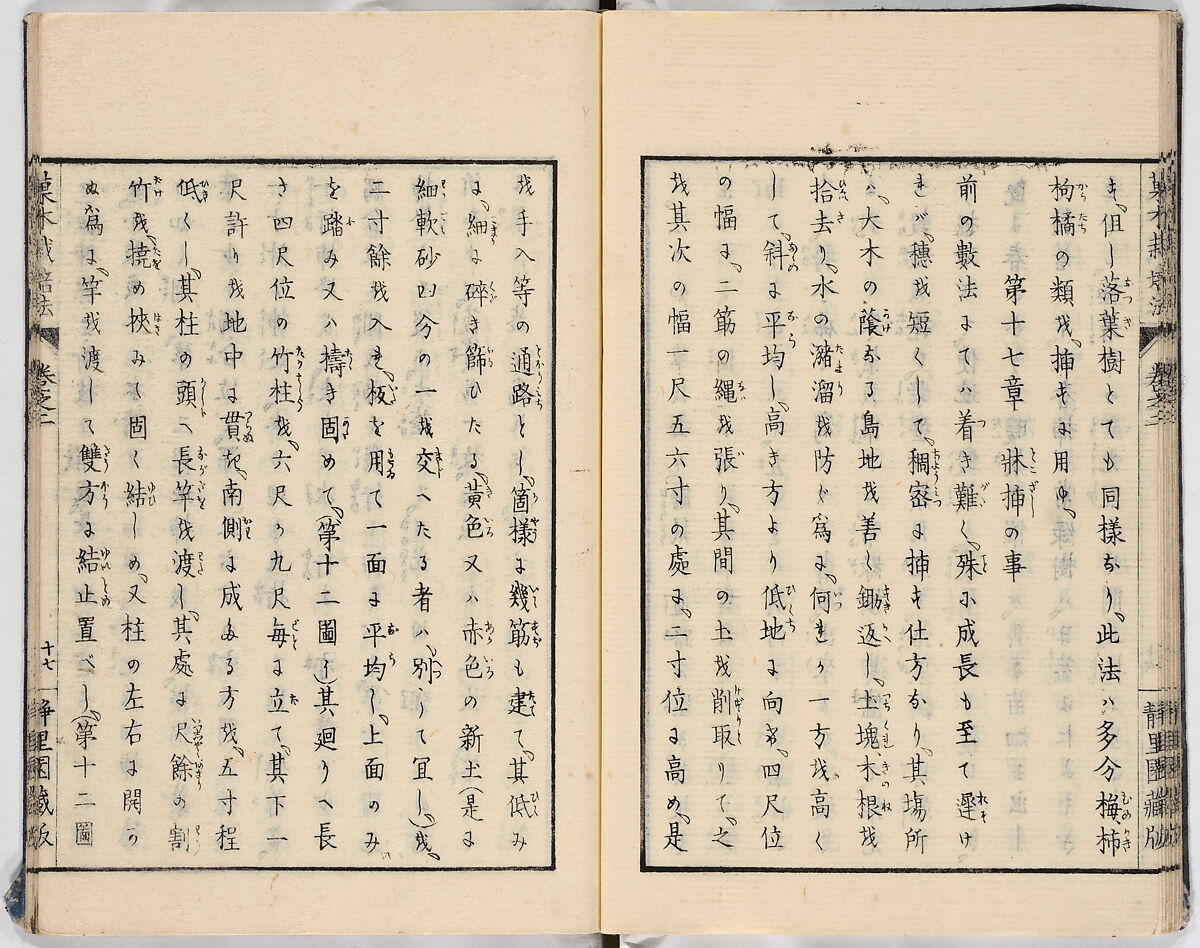 き、但し落葉樹とても同様なり、此法ハ多分梅柿
枸橘の類を、揷すに用ゆ、
第十七章　牀揷の事
前の數法にてハ着き難く、殊に成長も至て遲け
れバ、穗を短くして、稠密に揷す仕方なり、其塲所
ハ、大木の蔭なる畠地を善く鋤返し、土塊、木根を
拾去り、水の瀦溜を防ぐ爲に、何れか一方を高く
して、斜に平均し、高き方より低地に向ひ、四尺位
の幅に、二筋の縄を張り、其間の土を削取りて、之
を其次の幅一尺五六寸の處に、二寸位に高め、是
を手入等の通路とし、箇樣に幾筋も建て、其低み
に、細に碎き篩ひたる、黃色又ハ赤色の新土(是に
細軟砂四分の一を交へたる者ハ、別して宜し)を、
二寸餘を入れ、板を用て一面に平均し、上面のみ
を踏み又ハ擣き固めて、(第十二圖イ)其廻りへ長
さ四尺位の竹柱を、六尺か九尺每に立て、其下一
尺許りを地中に貫き、南側に成たる方を、五寸程
低くし、其柱の頭へ長竿を渡し、其處に尺餘の割
竹を、撓め挾みて固く結しめ、又柱の左右に開か
ぬ爲に、竿を渡して雙方に結止置べし、(第十二圖
菓木栽培法　卷之三
靜里園藏版
菓木栽培法　卷之三　十七　靜里園藏版